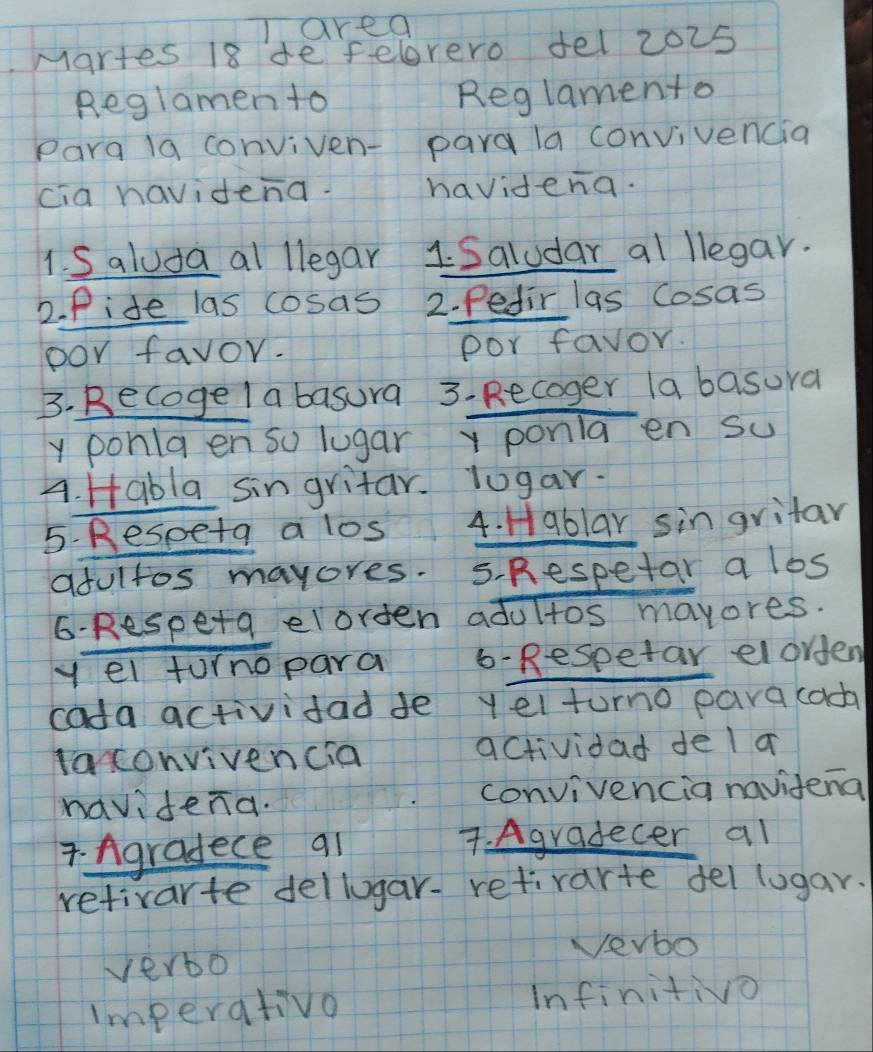 Tarea
Martes 18 de febrero del 2025
Reglamento
Para la conviven-
cia navideña.
1. Saluda al llegar
2. Pide las cosas
por favor.
3. Recoge la basura
y ponla en su lugar
4. Habla sin gritar.
5. Respeta a los
adultos mayores.
6. Respeta el orden
y el turno para
cada actividad de
la convivencia
navideña.
7. Agradece al
retirarte del lugar.
verbo
Imperativo
Reglamento
para la convivencia
navideña.
1. Saludar al llegar.
2. Pedir las cosas
por favor.
3. Recoger la basura
y ponla en su
lugar.
4. Hablar sin gritar
5. Respetar a los
adultos mayores.
6- Respetar el orden
y el turno para cada
actividad de la
convivencia navideña
7. Agradecer al
retirarte del lugar.
Verbo
Infinitivo